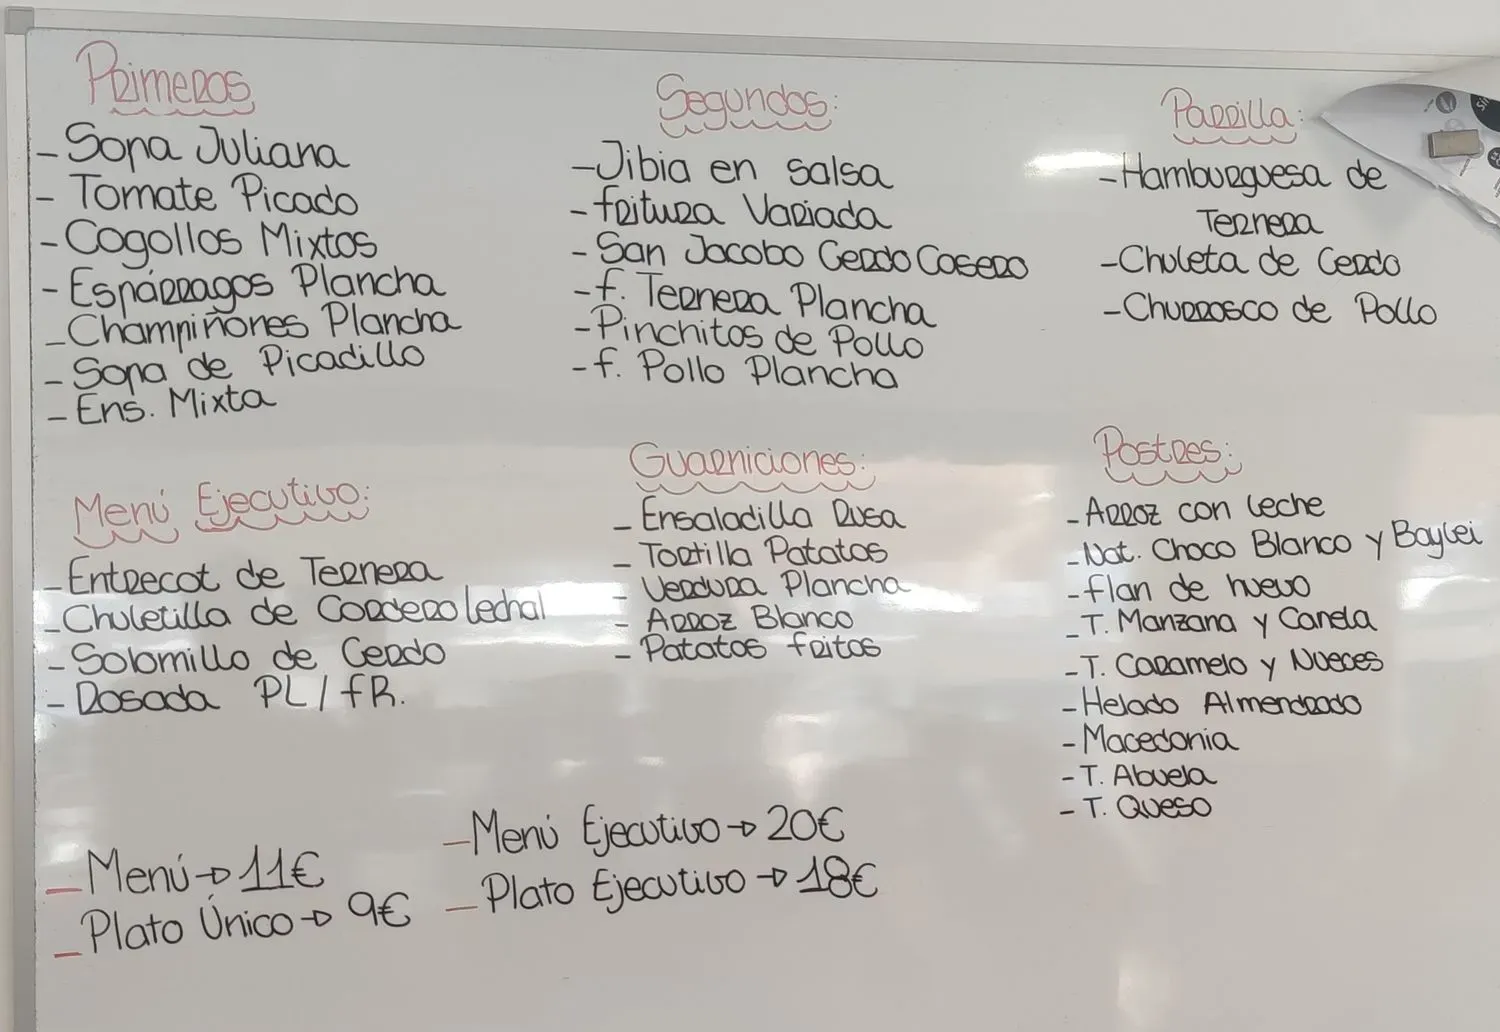 Primeros
- Sopa Juliana
- Tomate Picado
- Cogollos Mixtos
- Espárragos Plancha
- Champiñones Plancha
- Sopa de Picadillo
- Ens. Mixta
Segundos:
- Jibia en salsa
- fritura Variada
- San Jacobo Cerdo Casero
- f. Ternera Plancha
- Pinchitos de Pollo
- f. Pollo Plancha
Parrilla:
- Hamburguesa de
Ternera
- Chuleta de Cerdo
- Churrosco de Pollo
Menú Ejecutivo:
- Entrecot de Ternera
- Chuletilla de Cordero lechal
- Solomillo de Cerdo
- Rosada PL/fR.
Guarniciones:
- Ensaladilla Rusa
- Tortilla Patatas
- Verdura Plancha
- Arroz Blanco
- Patatas fritas
Postres:
- Arroz con leche
- Nat. Choco Blanco y Baylei
- flan de huevo
- T. Manzana y Canela
- T. Caramelo y Nueces
- Helado Almendrado
- Macedonia
- T. Abuela
- T. Queso
- Menú → 11€
- Plato Único → 9€
- Menú Ejecutivo → 20€
- Plato Ejecutivo → 18€